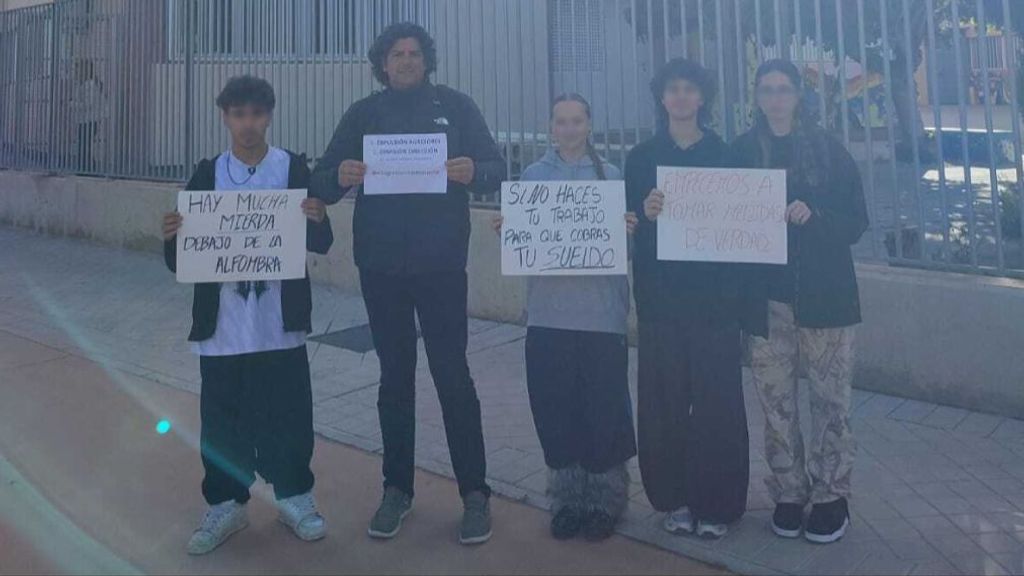 HAY MUCHA
MIERDA
DEBAJO DE LA
ALFOMBRA
- EXPULSIÓN AGRESORES
- DIMISIÓN DIRECCIÓN
SI NO HACES
TU TRABAJO
PARA QUE COBRAS
TU SUELDO
EMPECEMOS A
TOMAR MEDIDAS
DE VERDAD